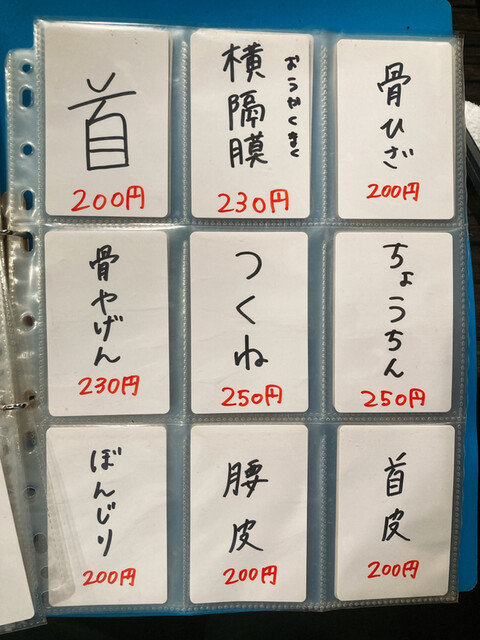 首
200円
横隔膜
おうかくまく
230円
骨ひざ
200円
骨やげん
230円
つくね
250円
ちょうちん
250円
ぼんじり
200円
腰皮
200円
首皮
200円